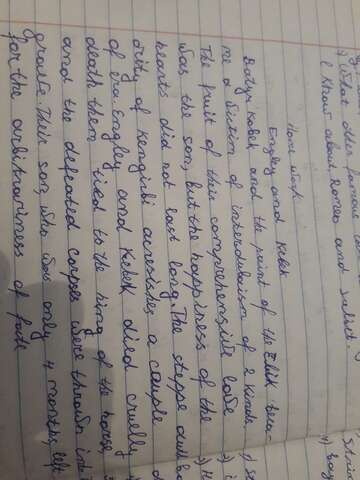 2) What other famous
I know about Romeo and Juliet.
Home work.
Engley and Kebek
Batyr Kebek and the point of the Elik beca-
me a victim of interduism of 2 kinds.
The fruit of this comprehensive love
was the son, but the happiness of the
hearts did not last long. The steppe
ority of kengirbi a couple
of era. Engley and Kebek died cruelly
death them tied to the ring of the horse
and the defeated corpses were thrown int
grave. Their son, who was only 4 months left
for the arbitrariness of fate